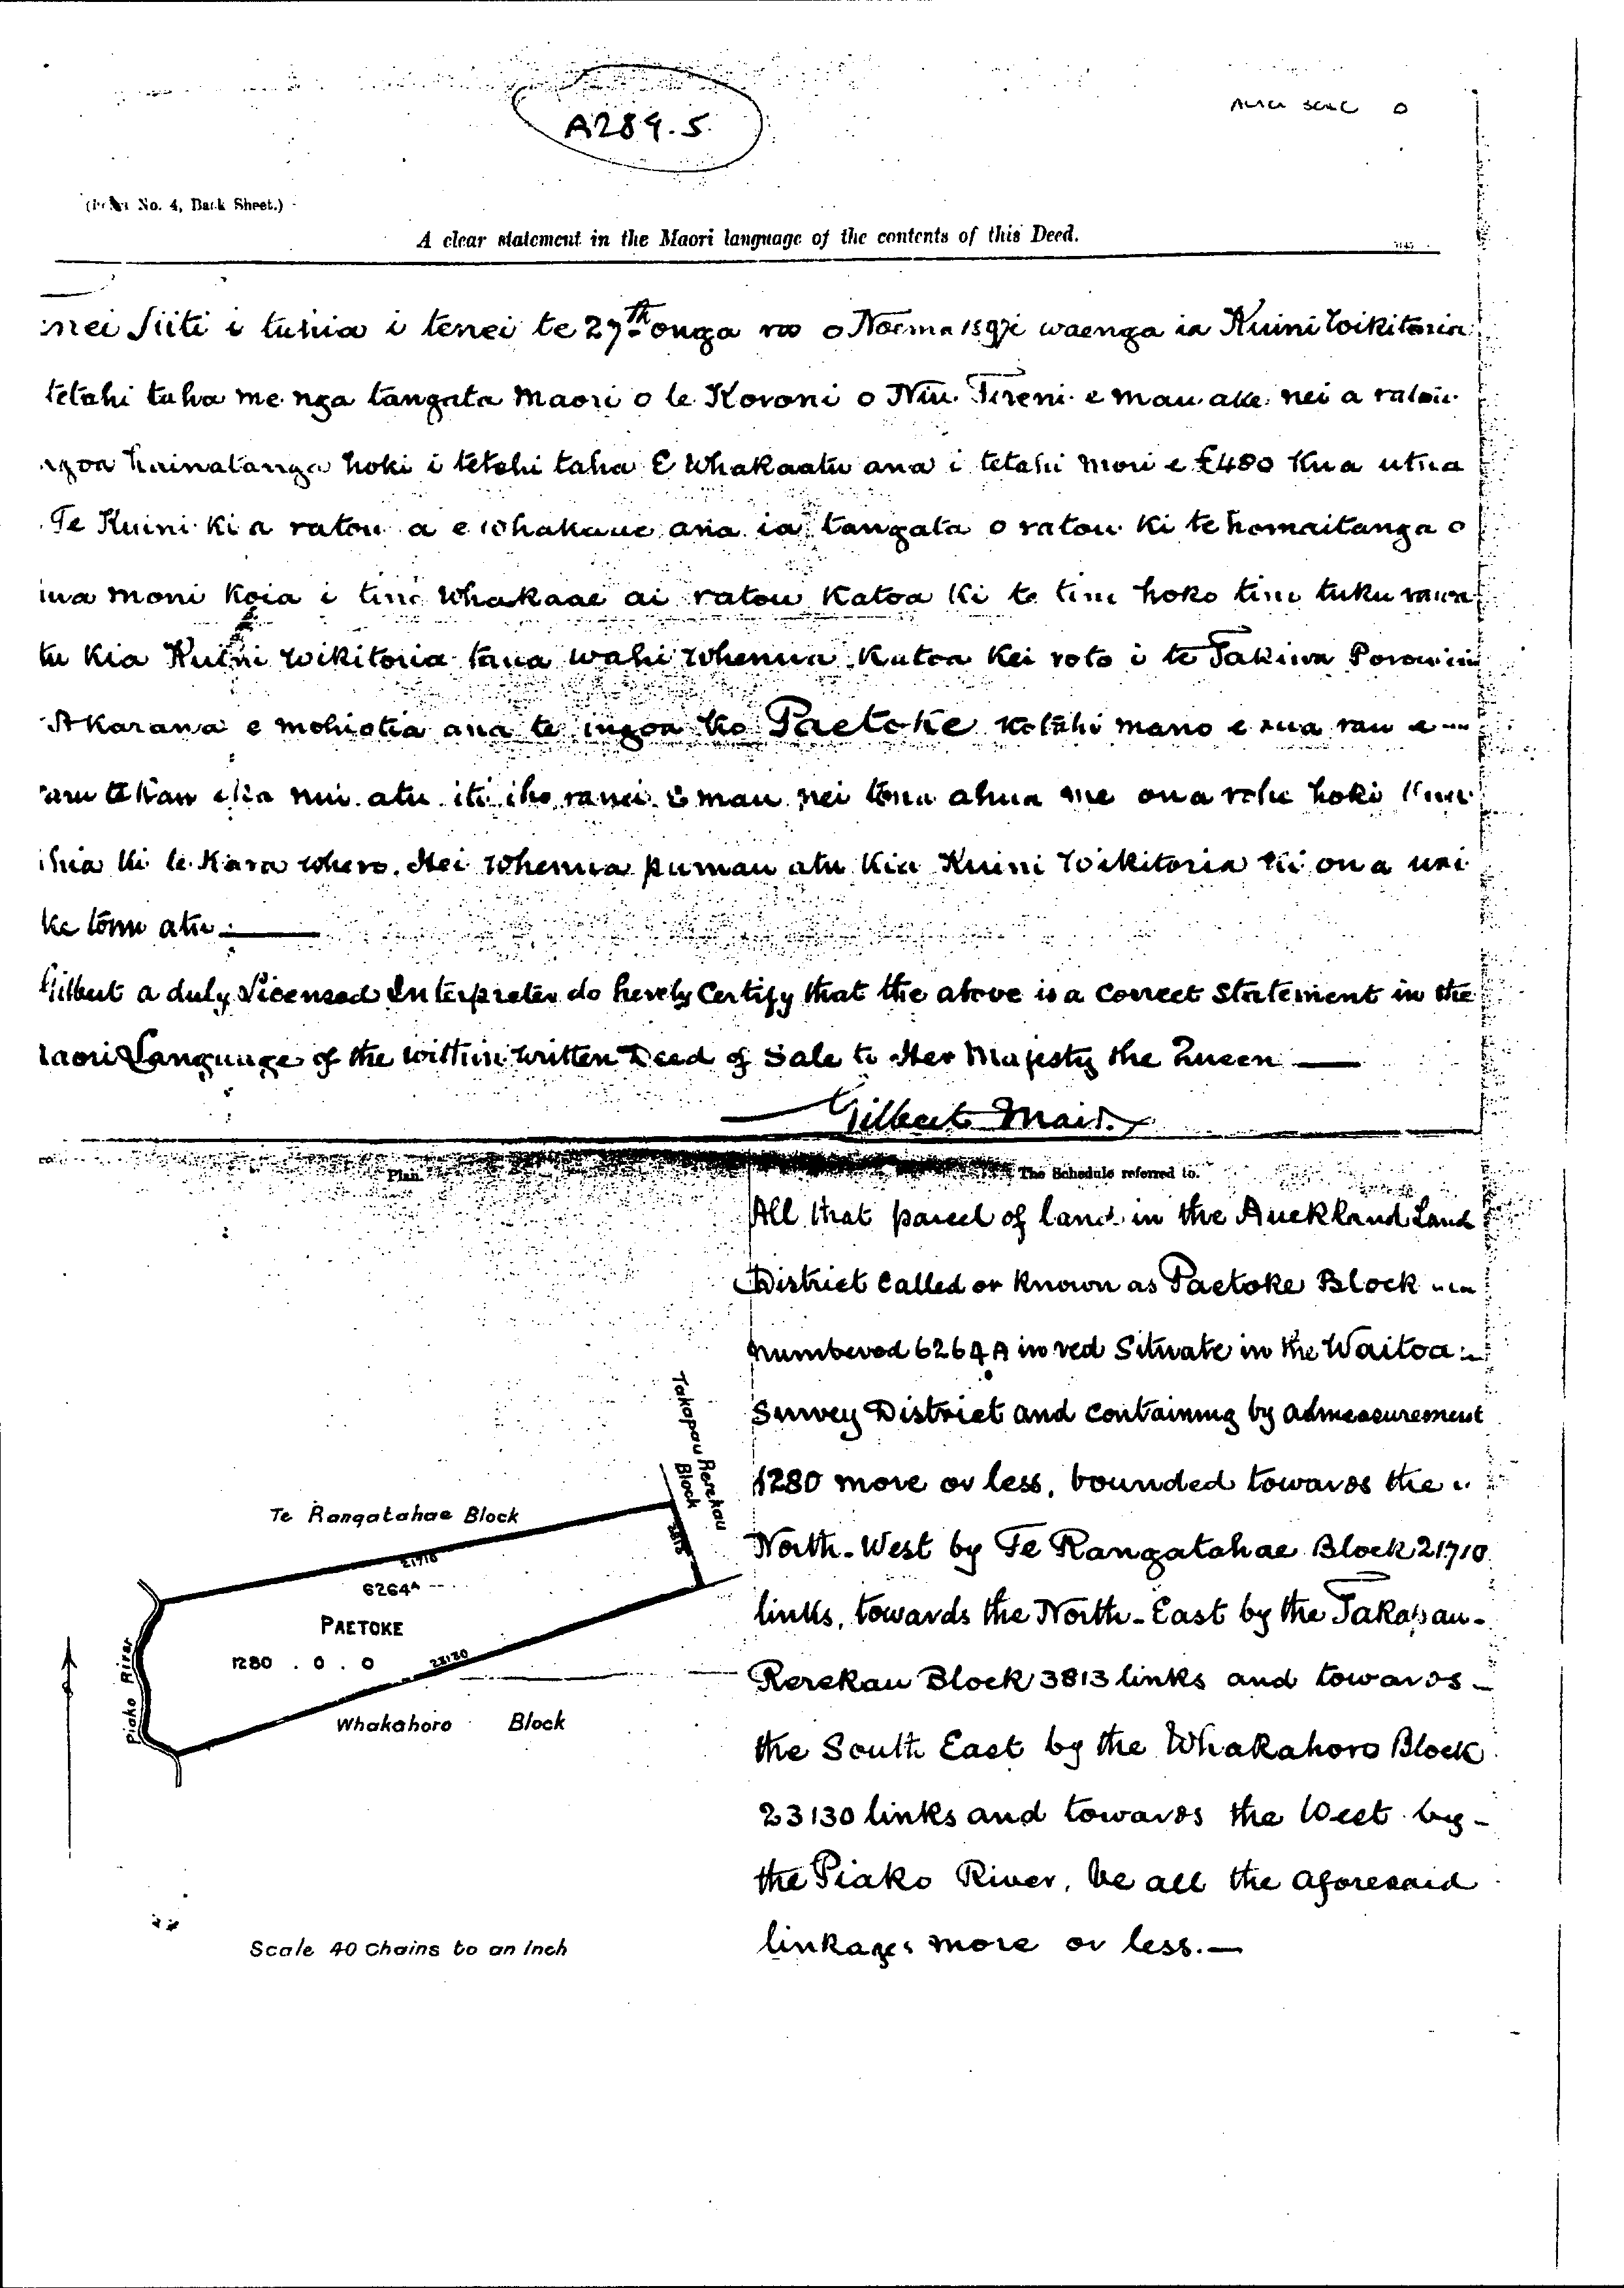 A289.5
(Form No. 4, Back Sheet.)
A clear statement in the Maori language of the contents of this Deed.
nei Tiiti i tuhia i tenei te 27th onga ra o Noema 1897 i waenga ia Kuini Wikitoria
tetahi taha me nga tangata Maori o te Koroni o Niu Tireni e mau ake nei a ratou
ngoa hainatanga hoki i tetehi taha E Whakaatu ana i tetahi moni e £480 Kua utua
Te Kuini ki a ratou a e whakaae ana ia tangata o ratou ki te homaitanga o
ua moni Koia i tino Whakaae ai ratou Katoa ki te tino hoko tino tuku rawa
tu Kia Kuini Wikitoria taua wahi Whenua Katoa Kei roto i te Takiwa Porowini
Akarana e mohiotia ana te ingoa ko Paetoke Kotahi mano e rua rau e
waru tekau eka nui atu iti iho ranei E mau nei tona ahua me ona rohe hoki
ihia ki te Kara whero. Hei Whenua pumau atu Kia Kuini Wikitoria Ki ona uri
ke tonu atu
Gilbert a duly Licensed Interpreter do hereby Certify that the above is a Correct Statement in the
Maori Language of the within written Deed of Sale to Her Majesty the Queen
Gilbert Mair.
Plan.
The Schedule referred to.
All that parcel of land in the Auckland Land
District Called or Known as Paetoke Block
numbered 6264A in red Situate in the Waitoa
Survey District and containing by admeasurement
1280 more or less, bounded towards the
North-West by Te Rangatahae Block 21710
links, towards the North-East by the Takapau-
Rerekau Block 3813 links and towards
the South East by the Whakahoro Block
23130 links and towards the West by
the Piako River, be all the aforesaid
linkages more or less.
Takapau Rerekau
Block
Te Rangatahae Block
21710
3813
6264A
PAETOKE
1280 . 0 . 0
23130
Piako River
Whakahoro Block
Scale 40 Chains to an Inch